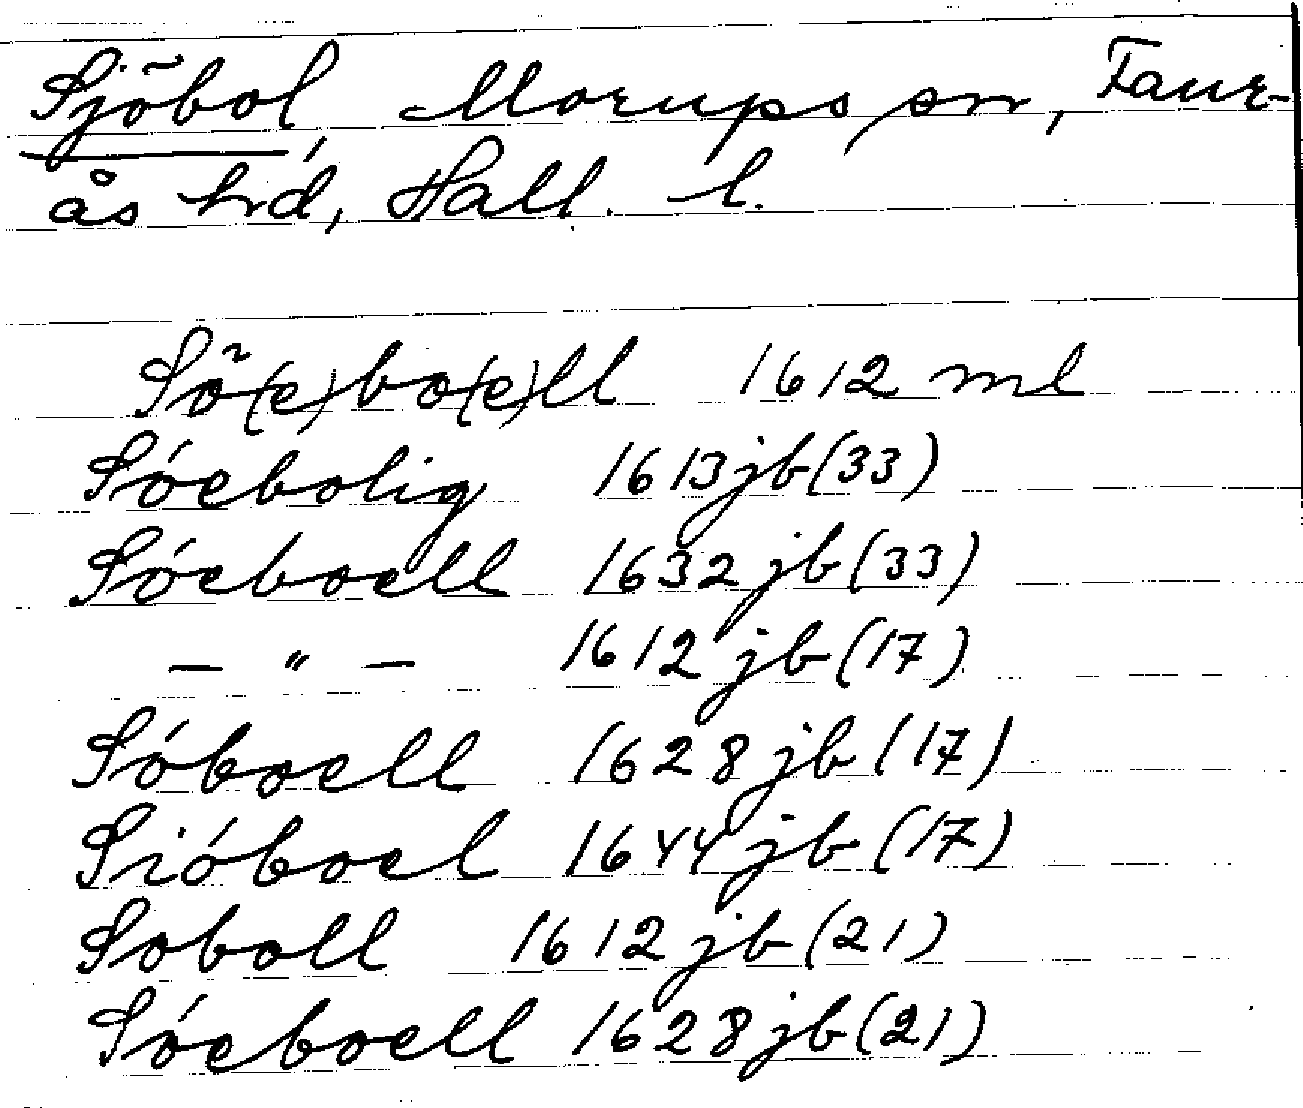 Sjöbol, Morups sn, Faur-
ås hrd, Hall. l.
Sö(e)bo(e)ll 1612 ml
Sóebolig 1613 jb (33)
Sóeboell 1632 jb (33)
— " — 1612 jb (17)
Sóboell 1628 jb (17)
Sióboel 1644 jb (17)
Soboll 1612 jb (21)
Sóeboell 1628 jb (21)